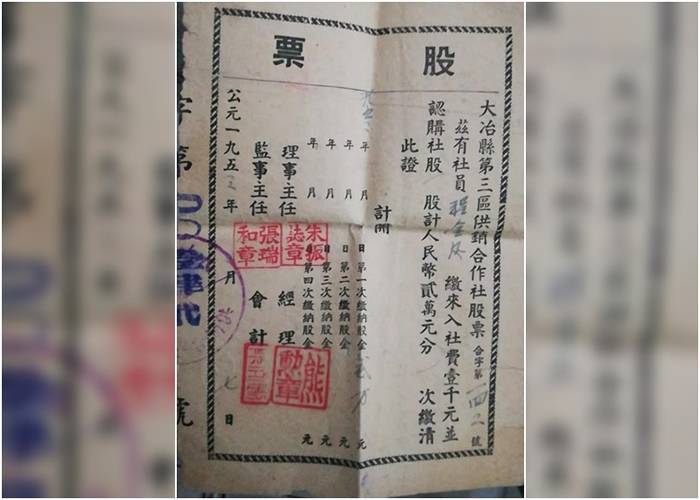 股票
大冶縣第三區供銷合作社股票 合字第一四二號
茲有社員程 繳來入社費壹千元並
認購社股 股計人民幣貳萬元分 次繳清
此證
計開
年 月 日第一次繳納股金 元
年 月 日第二次繳納股金 元
年 月 日第三次繳納股金 元
年 月 日第四次繳納股金 元
理事主任 朱振誌章 經理 熊勳章
監事主任 張瑞和章 會計
公元一九五 年 月 七日
字第 號